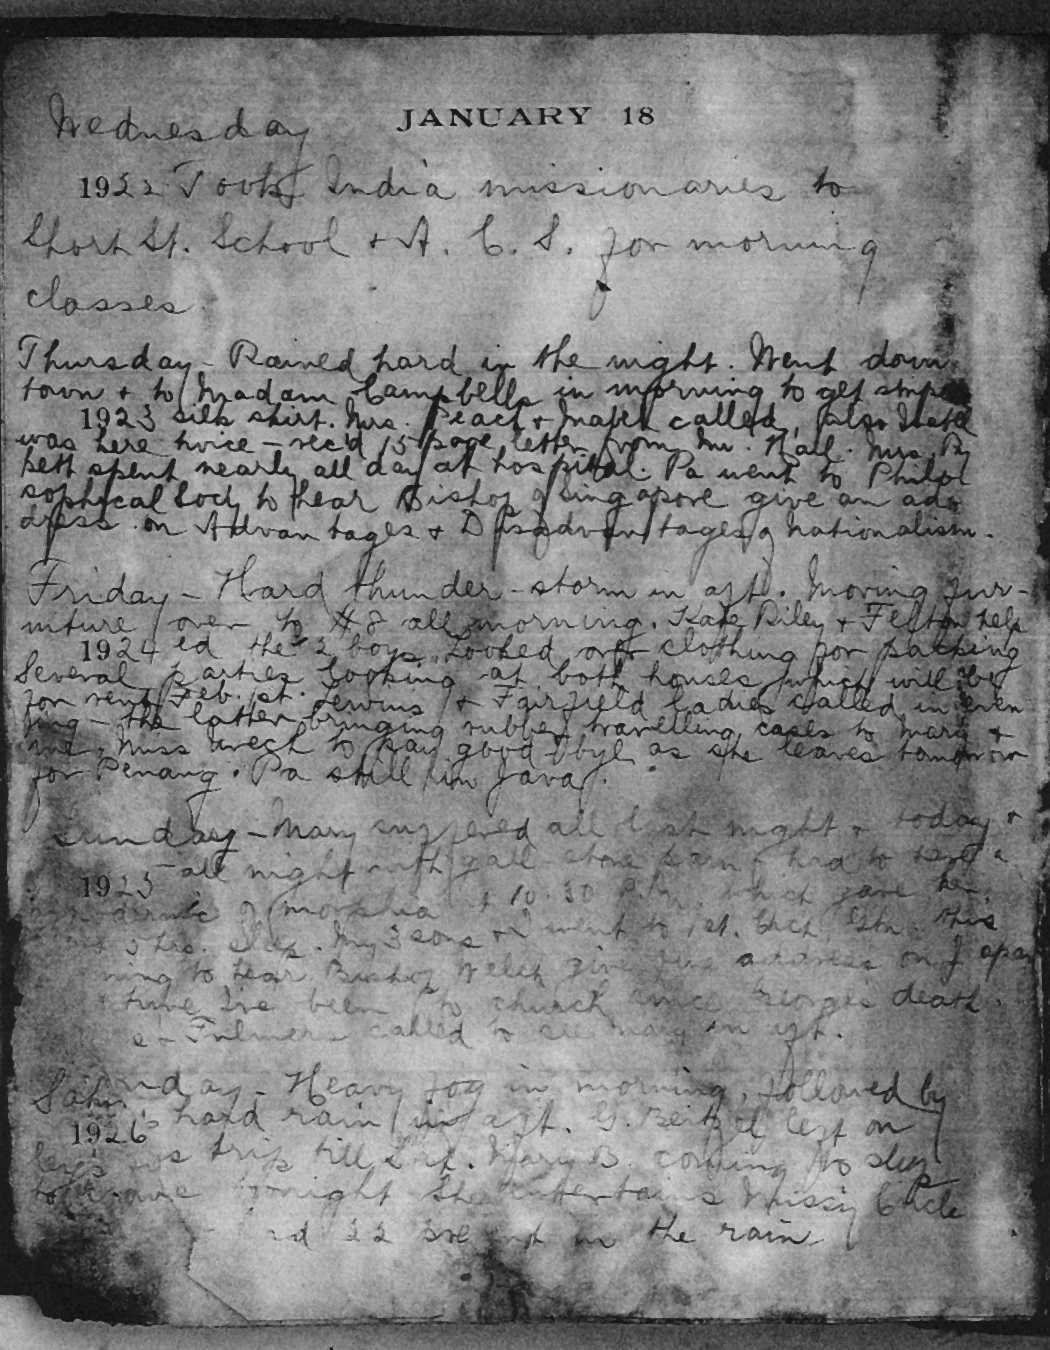 Wednesday JANUARY 18
1922 Took India missionaries to
Short St. School + A. C. S. for morning
classes.
Thursday - Rained hard in the night. Went down
town + to Madam Campbells in morning to get
1923 silk skirt. Mrs. Peach + Mabel called, also
was here twice - rec'd 15 page letter from Mr. Hall. Mrs.
spent nearly all day at hospital. Pa went to Philo
sophical Socty to hear Bishop of Singapore give an ad-
dress on Advantages + Disadvantages of nationalism.
Friday - Hard thunder-storm in aft. Moving fur-
niture over to #8 all morning. Kate Riley + Felton help
1924 ed the 2 boys. Looked over clothing for packing
Several parties looking at both houses which will be
for rent Feb. 1st. + Fairfield ladies called in even
ing - the latter bringing rubber travelling cases to Mary +
me. Miss to say good bye as she leaves tomorrow
for Penang. Pa still in Java.
Sunday - Mary suffered all last night + today +
1925 - all night with gall-stone pain + had to have a
of morphia at 10.30 P.M. which gave her
5 hrs. sleep. My 3 sons + I went to 1st. this
ning to hear Bishop Welch give fine address on
time I've been to church since George's death.
+ Fulmers called to see Mary in aft.
Heavy fog in morning, followed by
1926 hard rain in aft. G. Beitzel left on
trip till Sat. Mary B. coming to sleep
tonight She entertains Missy Circle
22 in the rain